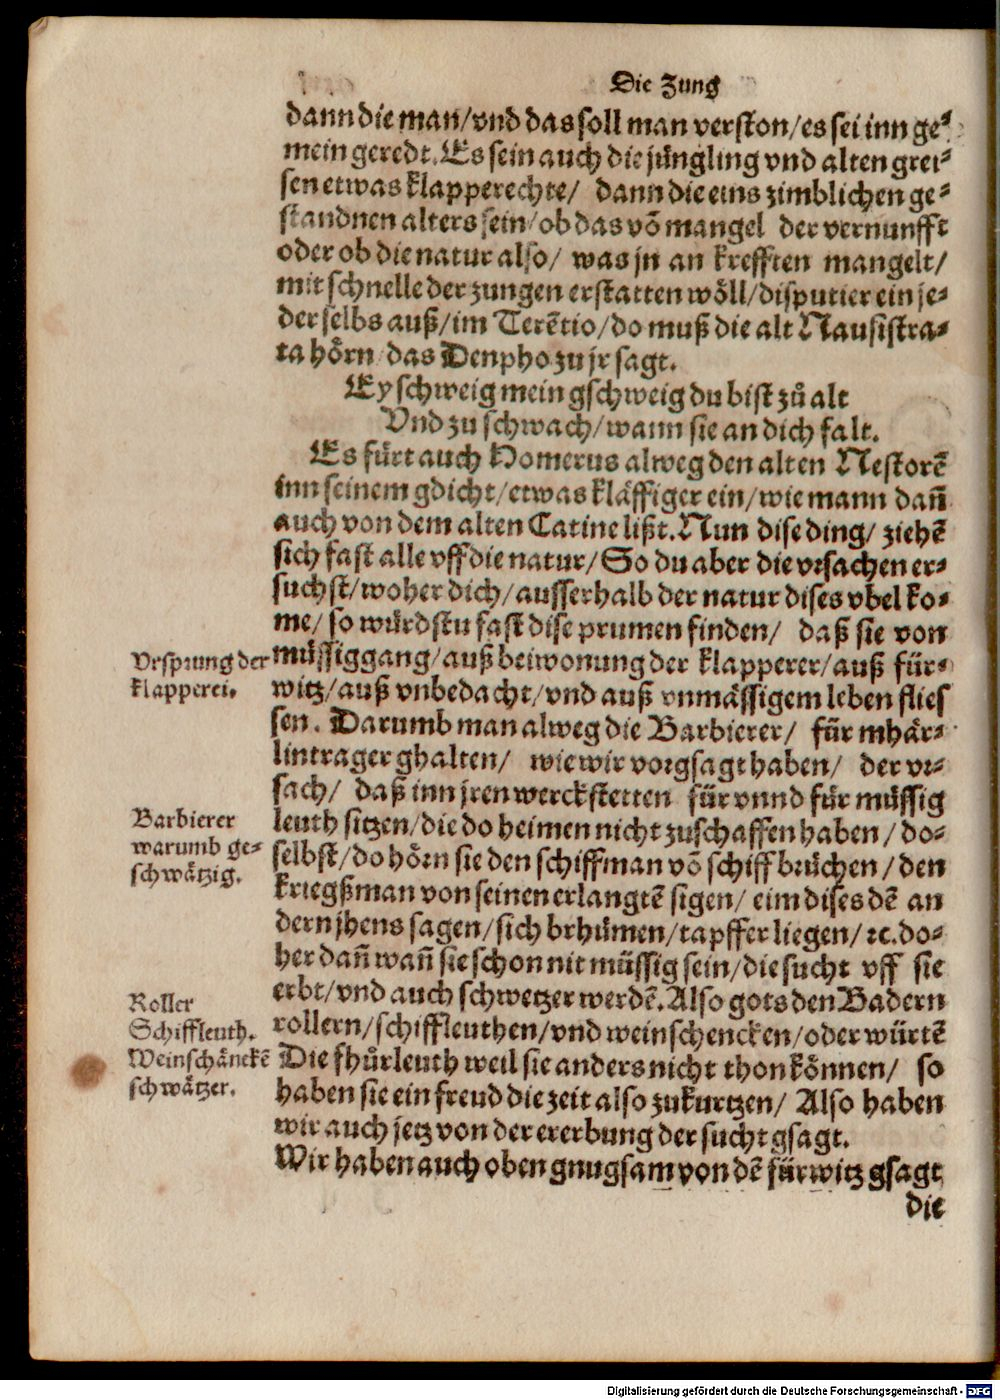 Die Zung
dann die man/vnd das soll man verston/es sei inn ge⸗
mein geredt. Es sein auch die jüngling vnd alten grei⸗
sen etwas klapperechte/ dann die eins zimblichen ge⸗
standnen alters sein/ob das võ mangel der vernunfft
oder ob die natur also/ was jn an krefften mangelt/
mit schnelle der zungen erstatten wöll/disputier ein je⸗
der selbs auß/im Terẽtio/do muß die alt Nausistra⸗
ta hörn/das Denpho zu jr sagt.
Ey schweig mein gschweig du bist zů alt
Vnd zu schwach/wann sie an dich falt.
Es fürt auch Homerus alweg den alten Nestorẽ
inn seinem gdicht/etwas kläffiger ein/wie mann dañ
auch von dem alten Catine lißt. Nun dise ding/ ziehẽ
sich fast alle vff die natur/So du aber die vrsachen er⸗
suchst/woher dich/ausserhalb der natur dises vbel ko⸗
me/ so würdstu fast dise prumen finden/ daß sie von
müssiggang/auß beiwonung der klapperer/auß für⸗
witz/auß vnbedacht/vnd auß vnmässigem leben flies
sen. Darumb man alweg die Barbierer/ für mhär⸗
lintrager ghalten/ wie wir vorgsagt haben/ der vr⸗
sach/ daß inn jren werckstetten für vnnd für müssig
leuth sitzen/die do heimen nicht zuschaffen haben/do⸗
selbst/do hörn sie den schiffman võ schiffbrüchen/den
kriegßman von seinen erlangtẽ sigen/ eim dises dẽ an
dern jhens sagen/sich brhümen/tapffer liegen/ꝛc. do⸗
her dañ wañ sie schon nit müssig sein/die sucht vff sie
erbt/vnd auch schwetzer werdẽ. Also gots den Badern
rollern/schiffleuthen/vnd weinschencken/oder würtẽ
Die fhůrleuth weil sie anders nicht thon können/ so
haben sie ein freud die zeit also zukurtzen/ Also haben
wir auch jetz von der ererbung der sucht gsagt.
Wir haben auch oben gnugsam von dẽ fürwitz gsagt
die
Vrsprung der
klapperei.
Barbierer
warumb ge⸗
schwätzig.
Roller
Schiffleuth.
Weinschänckẽ
schwätzer.
Digitalisierung gefördert durch die Deutsche Forschungsgemeinschaft - DFG